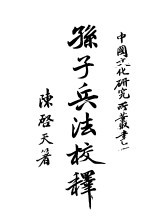 中國文化研究所叢書之一
孫子兵法校釋
陳啓天著